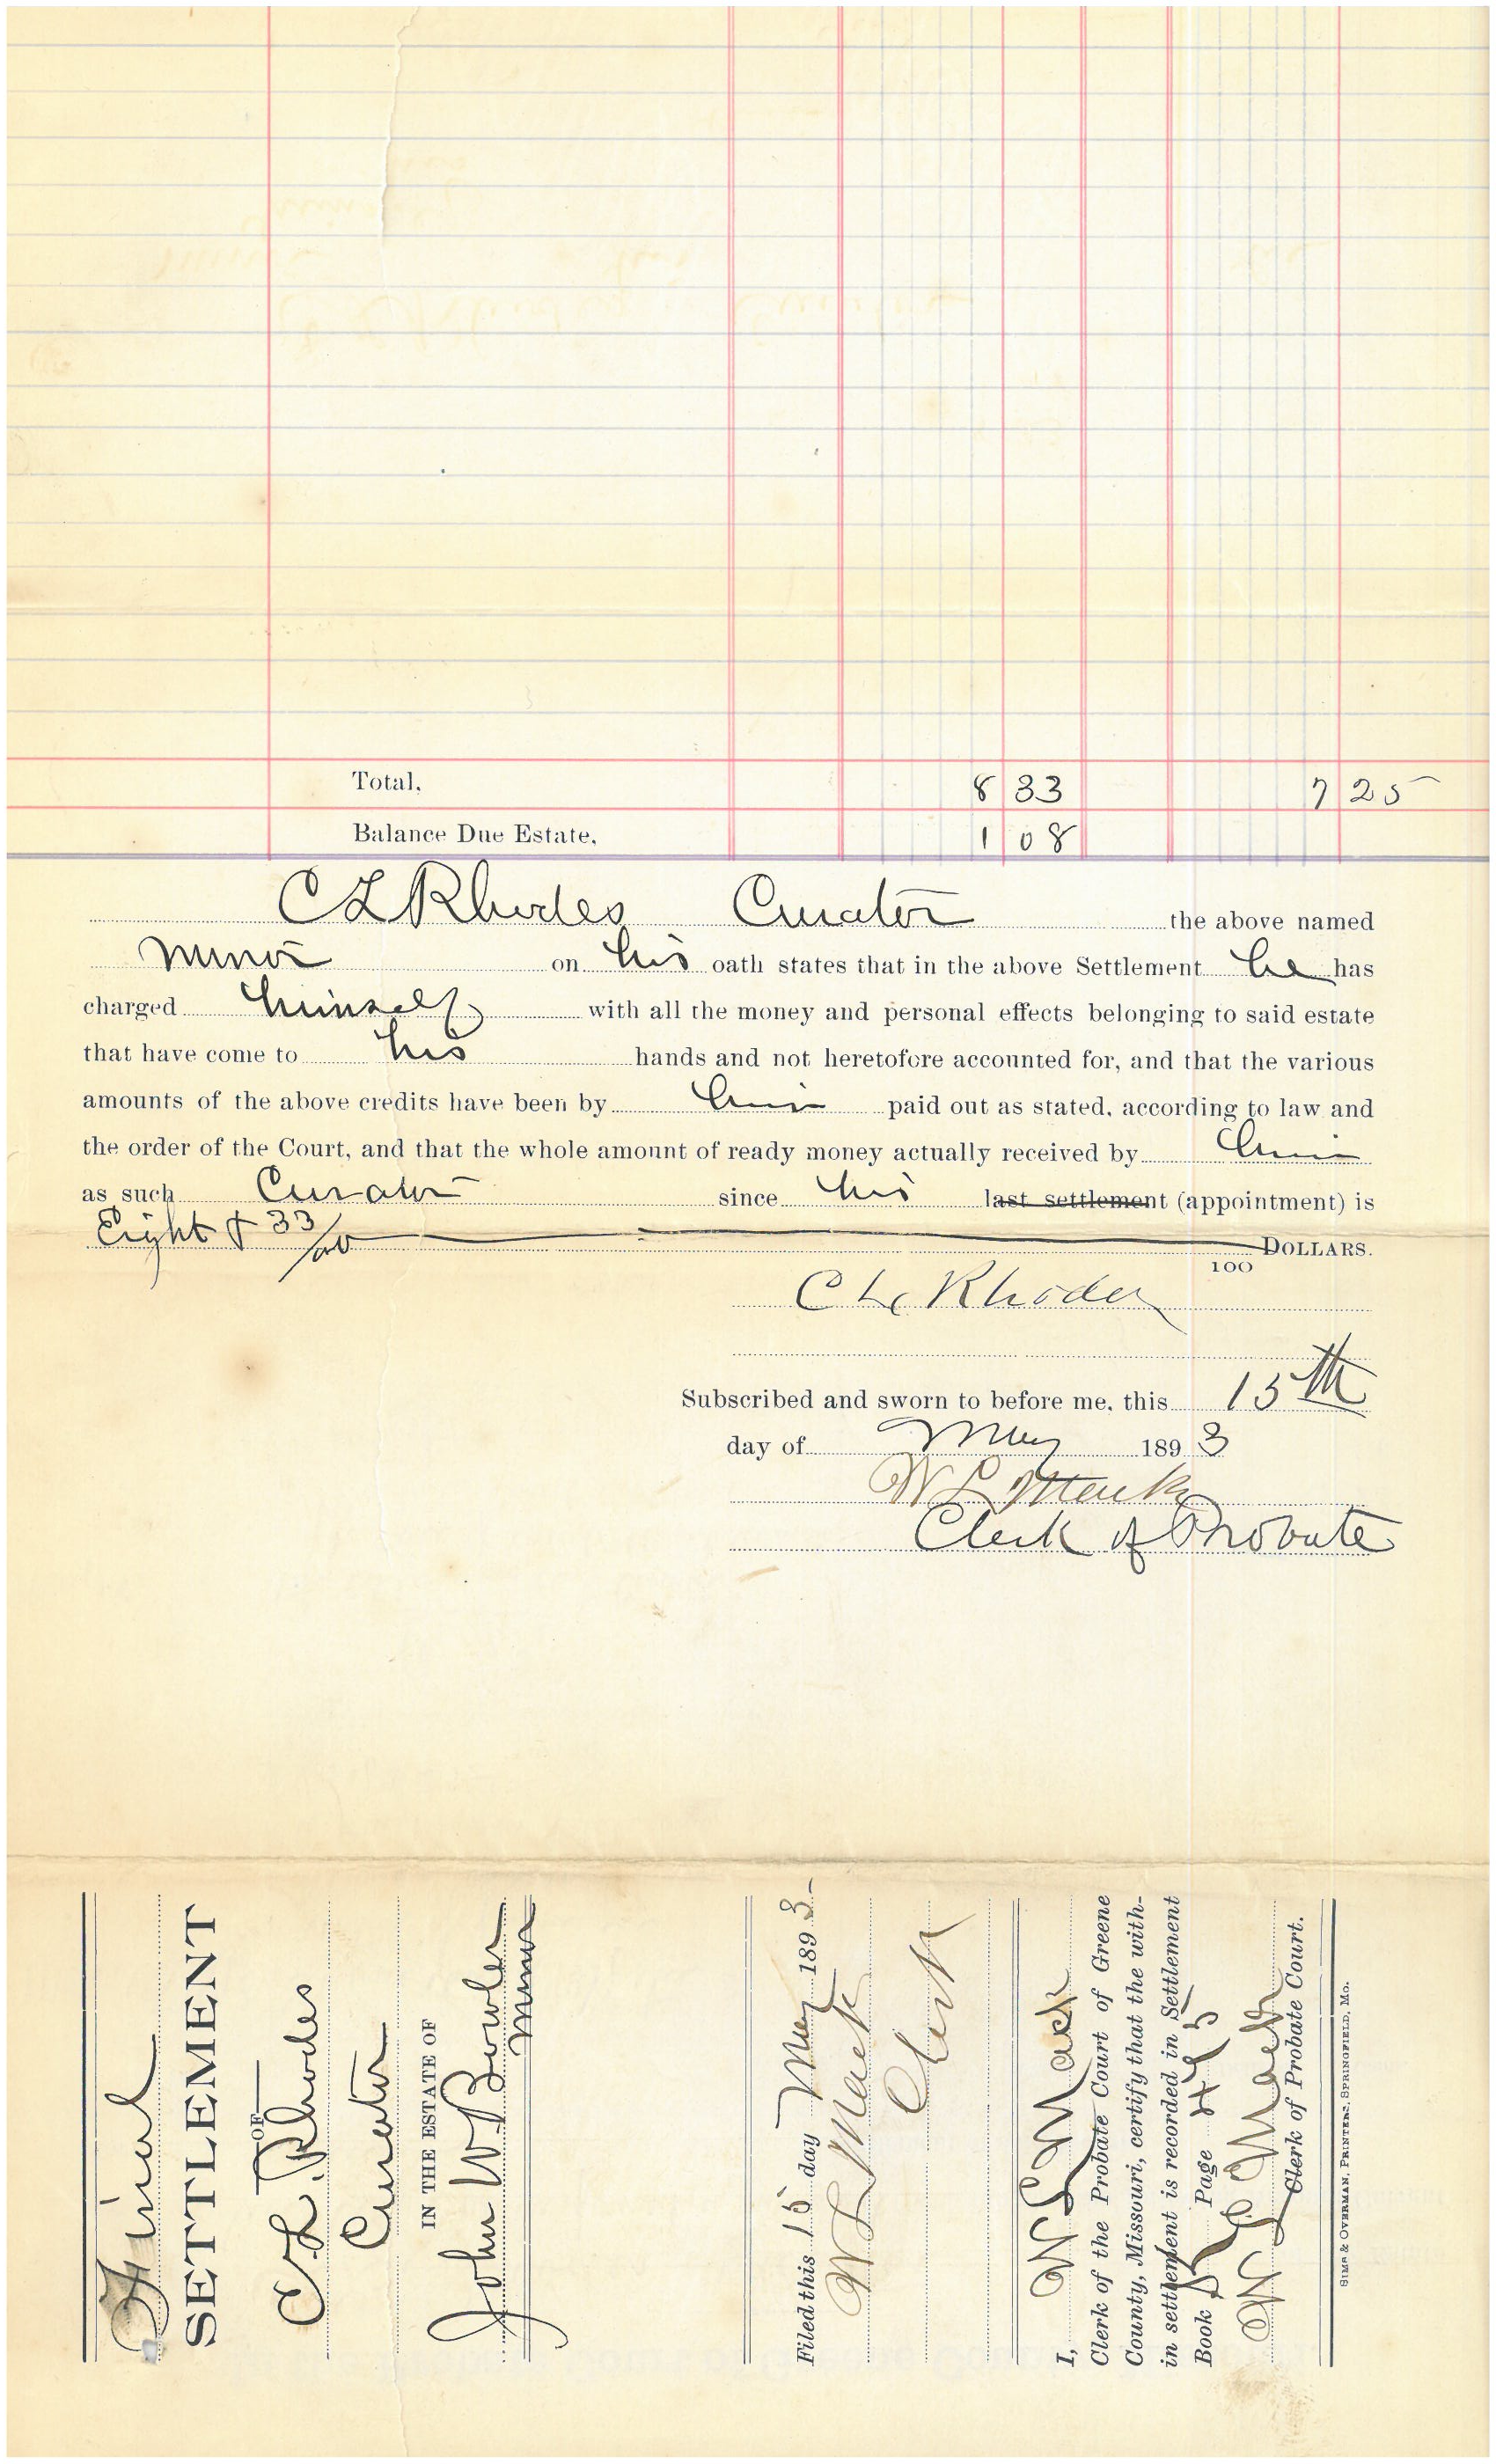 Total, 8 33 7 25
Balance Due Estate, 1 08
C L Rhodes Curator the above named
minor on his oath states that in the above Settlement he has
charged himself with all the money and personal effects belonging to said estate
that have come to his hands and not heretofore accounted for, and that the various
amounts of the above credits have been by him paid out as stated, according to law and
the order of the Court, and that the whole amount of ready money actually received by him
as such Curator since his last settlement (appointment) is
Eight & 33/100 DOLLARS.
100
C L Rhodes
Subscribed and sworn to before me, this 15th
day of May 1893
W L Mack
Clerk of Probate
Final
SETTLEMENT
OF
C L Rhodes
Curator
IN THE ESTATE OF
John W Bowles
Minor
Filed this 15 day May 1893
W L Mack
Clerk
I, W L Mack
Clerk of the Probate Court of Greene
County, Missouri, certify that the with-
in settlement is recorded in Settlement
Book Page 495
W L Mack
Clerk of Probate Court.
SIMS & OVERMAN, PRINTERS, SPRINGFIELD, MO.